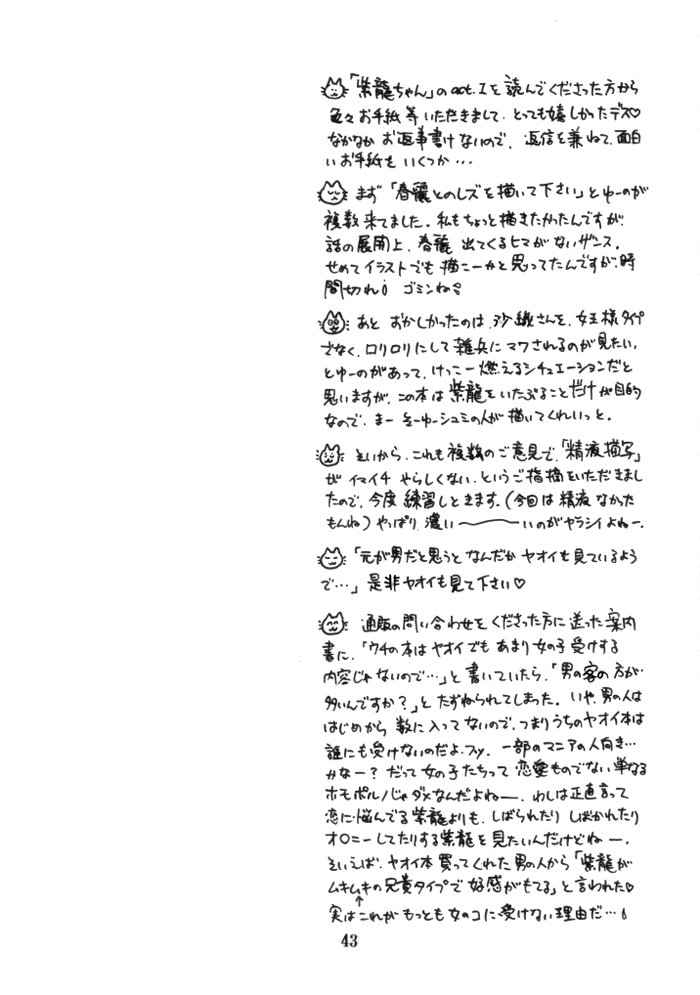 「紫龍ちゃん」の act.Iを 読んでくださった方から
色々お手紙等いただきまして、とっても嬉しかったデス♡
なかなか お返事書けないので、返信を兼ねて、面白
いお手紙を いくつか…
まず「春麗とのレズを描いて下さい」とゆーのが
複数来てました。私もちょっと描きたかったんですが、
話の展開上、春麗 出てくるヒマがないザンス。
せめてイラストでも 描こーかと思ってたんですが、時
間切れ! ゴミンね
あと おかしかったのは、沙織さんを、女王様タイプ
でなく、ロリロリにして雑兵にマワされるのが見たい、
とゆーのがあって、けっこー燃えるシチュエーションだと
思いますが、この本は紫龍をいたぶることだけが目的
なので、まー そーゆーシュミの人が描いてくれいっと。
そいから、これも複数のご意見で、「精液描写」
が イマイチ やらしくない、というご指摘をいただきまし
たので、今度練習しときます。(今回は精液なかった
もんね)やっぱり濃い〜〜〜いのがヤラシイよねー。
「元が男だと思うと なんだか ヤオイも見ているよう
で…」是非ヤオイも見て下さい♡
通販の問い合わせを くださった方に送った案内
書に、「ウチの本は ヤオイでも あまり女の子受けする
内容じゃないので…」と書いていたら、「男の客の方が
多いんですか?」と たずねられてしまった。いや、男の人は
はじめから 数に入ってないので、つまりうちのヤオイ本は
誰にも受けないのだよ、フッ。一部のマニアの人向き…
かなー? だって女の子たちって 恋愛ものでない単なる
ホモポルノじゃダメなんだよねー。わしは正直言って
恋に悩んでる紫龍よりも、しばられたり しばかれたり
オ○ニーしてたりする紫龍を見たいんだけどねー。
そいえば、ヤオイ本買ってくれた男の人から「紫龍が
ムキムキの兄貴タイプで好感がもてる」と言われた♡
実は↑これが もっとも女のコに受けない理由だ…
43